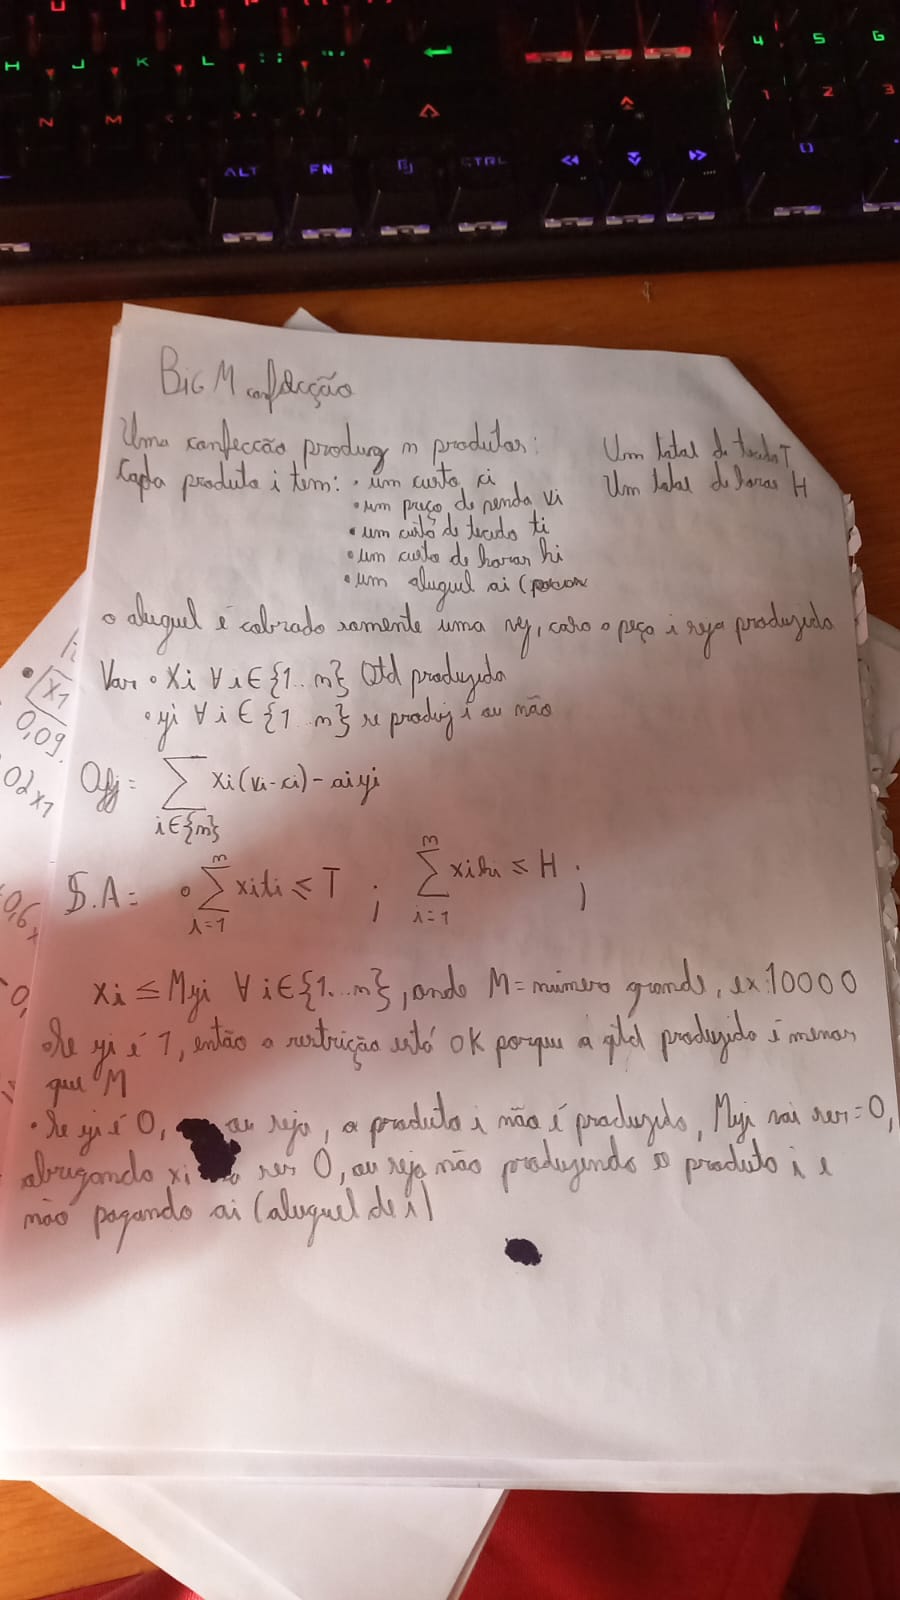 H J K L : ; " '
N M < > ? /
ALT FN CTRL
4 5 6
1 2 3
0
BIG M confecção
Uma confeccão produz n produtos: Um total de tecido T
Cada produto i tem: • um custo ci Um total de horas H
• um preço de venda vi
• um custo de tecido ti
• um custo de horas hi
• um aluguel ai (
o aluguel é cobrado somente uma vez, caso a peça i seja produzida
Var • Xi ∀ i ∈ {1..n} Qtd produzida
• yi ∀ i ∈ {1..n} se produz i ou não
Obj = ∑ i∈{n} xi(vi-ci) - aiyi
S.A = • ∑ i=1 n xiti ≤ T ; ∑ i=1 n xihi ≤ H ;
xi ≤ Myi ∀ i ∈ {1...n}, onde M = número grande, ex:10000
• Se yi é 1, então a restrição está OK porque a qtd produzida é menor
que M
• Se yi é 0, ou seja, o produto i não é produzido, Myi vai ser = 0,
obrigando xi a ser 0, ou seja não produzindo o produto i e
não pagando ai (aluguel de i)
x1
0,09
02x1
0,6x